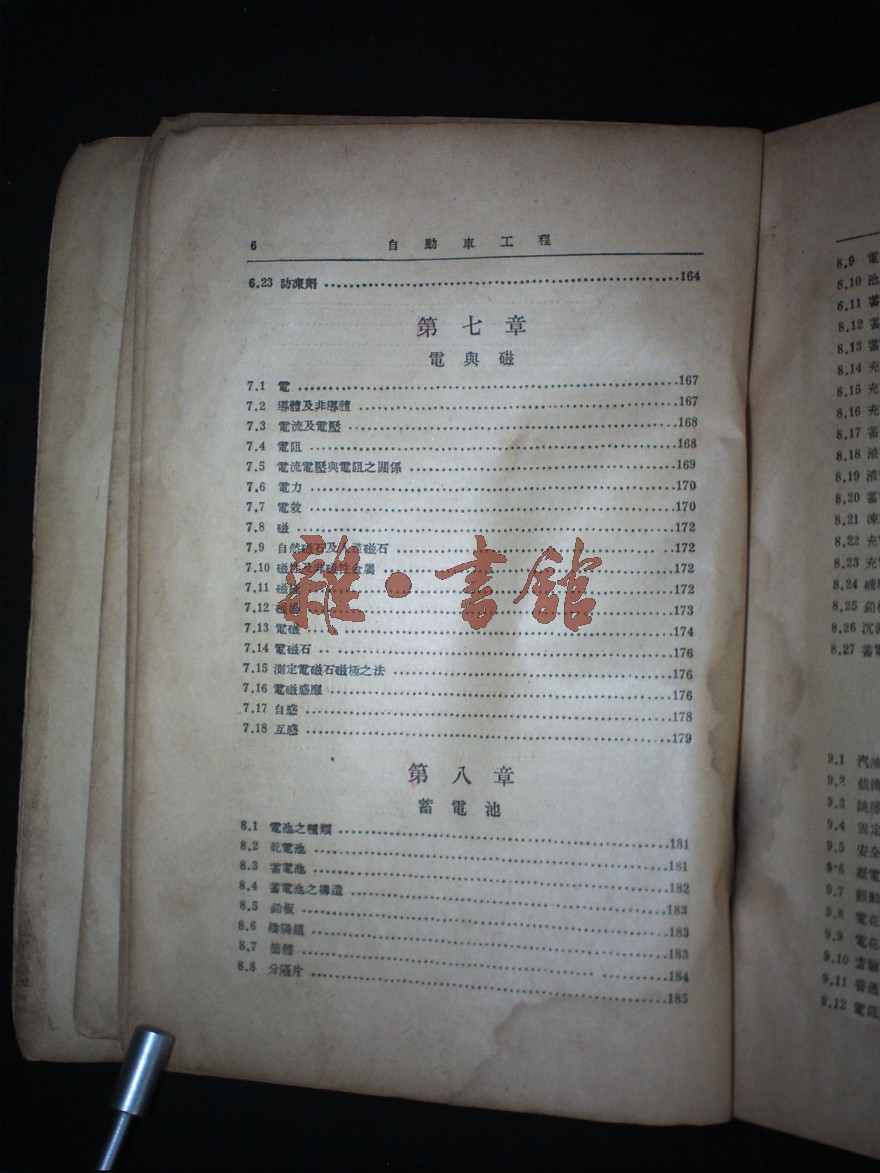 6 自動車工程
6.23 防凍劑 164
第七章
電與磁
7.1 電 167
7.2 導體及非導體 167
7.3 電流及電壓 168
7.4 電阻 168
7.5 電流電壓與電阻之關係 169
7.6 電力 170
7.7 電效 170
7.8 磁 172
7.9 自然磁石及人造磁石 172
7.10 磁性及非磁性金屬 172
7.11 磁 172
7.12 173
7.13 電磁 174
7.14 電磁石 176
7.15 測定電磁石磁極之法 176
7.16 電磁感應 176
7.17 自感 178
7.18 互感 179
第八章
蓄電池
8.1 電池之種類 181
8.2 乾電池 181
8.3 蓄電池 182
8.4 蓄電池之構造 183
8.5 鉛板 183
8.6 陰陽組 183
8.7 箱體 184
8.8 分隔片 185
雜·書館
8.9 電
8.10 池
8.11 蓄
8.12 蓄
8.13 蓄
8.14 充
8.15 充
8.16 充
8.17 蓄
8.18 液
8.19 液
8.20 蓄
8.21 凍
8.22 充
8.23 充
8.24 硫
8.25 鉛
8.26 沉
8.27 蓄電
9.1 汽油
9.2
9.3
9.4 固定
9.5 安全
9.6
9.7
9.8 電花
9.9 電花
9.10
9.11 普通
9.12 電阻